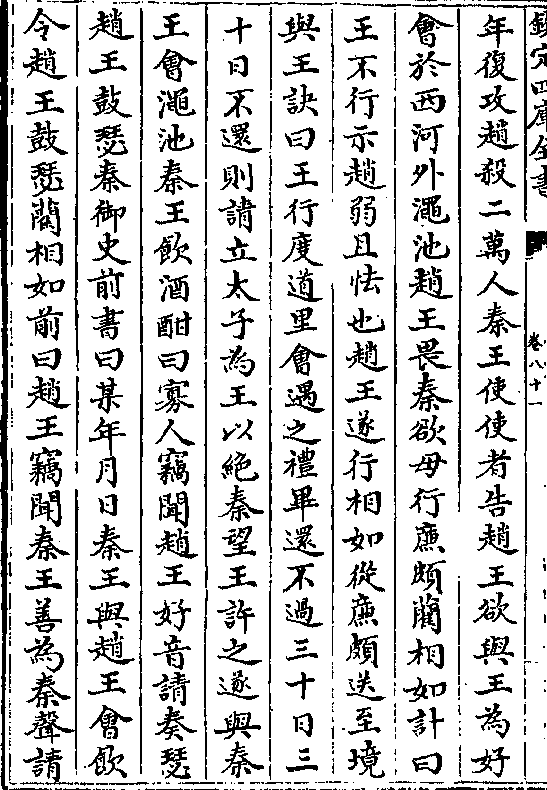 欽定四庫全書
卷八十一
年復攻趙殺二萬人秦王使使者告趙王欲與王為好
會於西河外澠池趙王畏秦欲毋行廉頗藺相如計曰
王不行示趙弱且怯也趙王遂行相如從廉頗送至境
與王訣曰王行度道里會遇之禮畢還不過三十日三
十日不還則請立太子為王以絶秦望王許之遂與秦
王會澠池秦王飲酒酣曰寡人竊聞趙王好音請奏瑟
趙王鼓瑟秦御史前書曰某年月日秦王與趙王會飲
令趙王鼓瑟藺相如前曰趙王竊聞秦王善為秦聲請